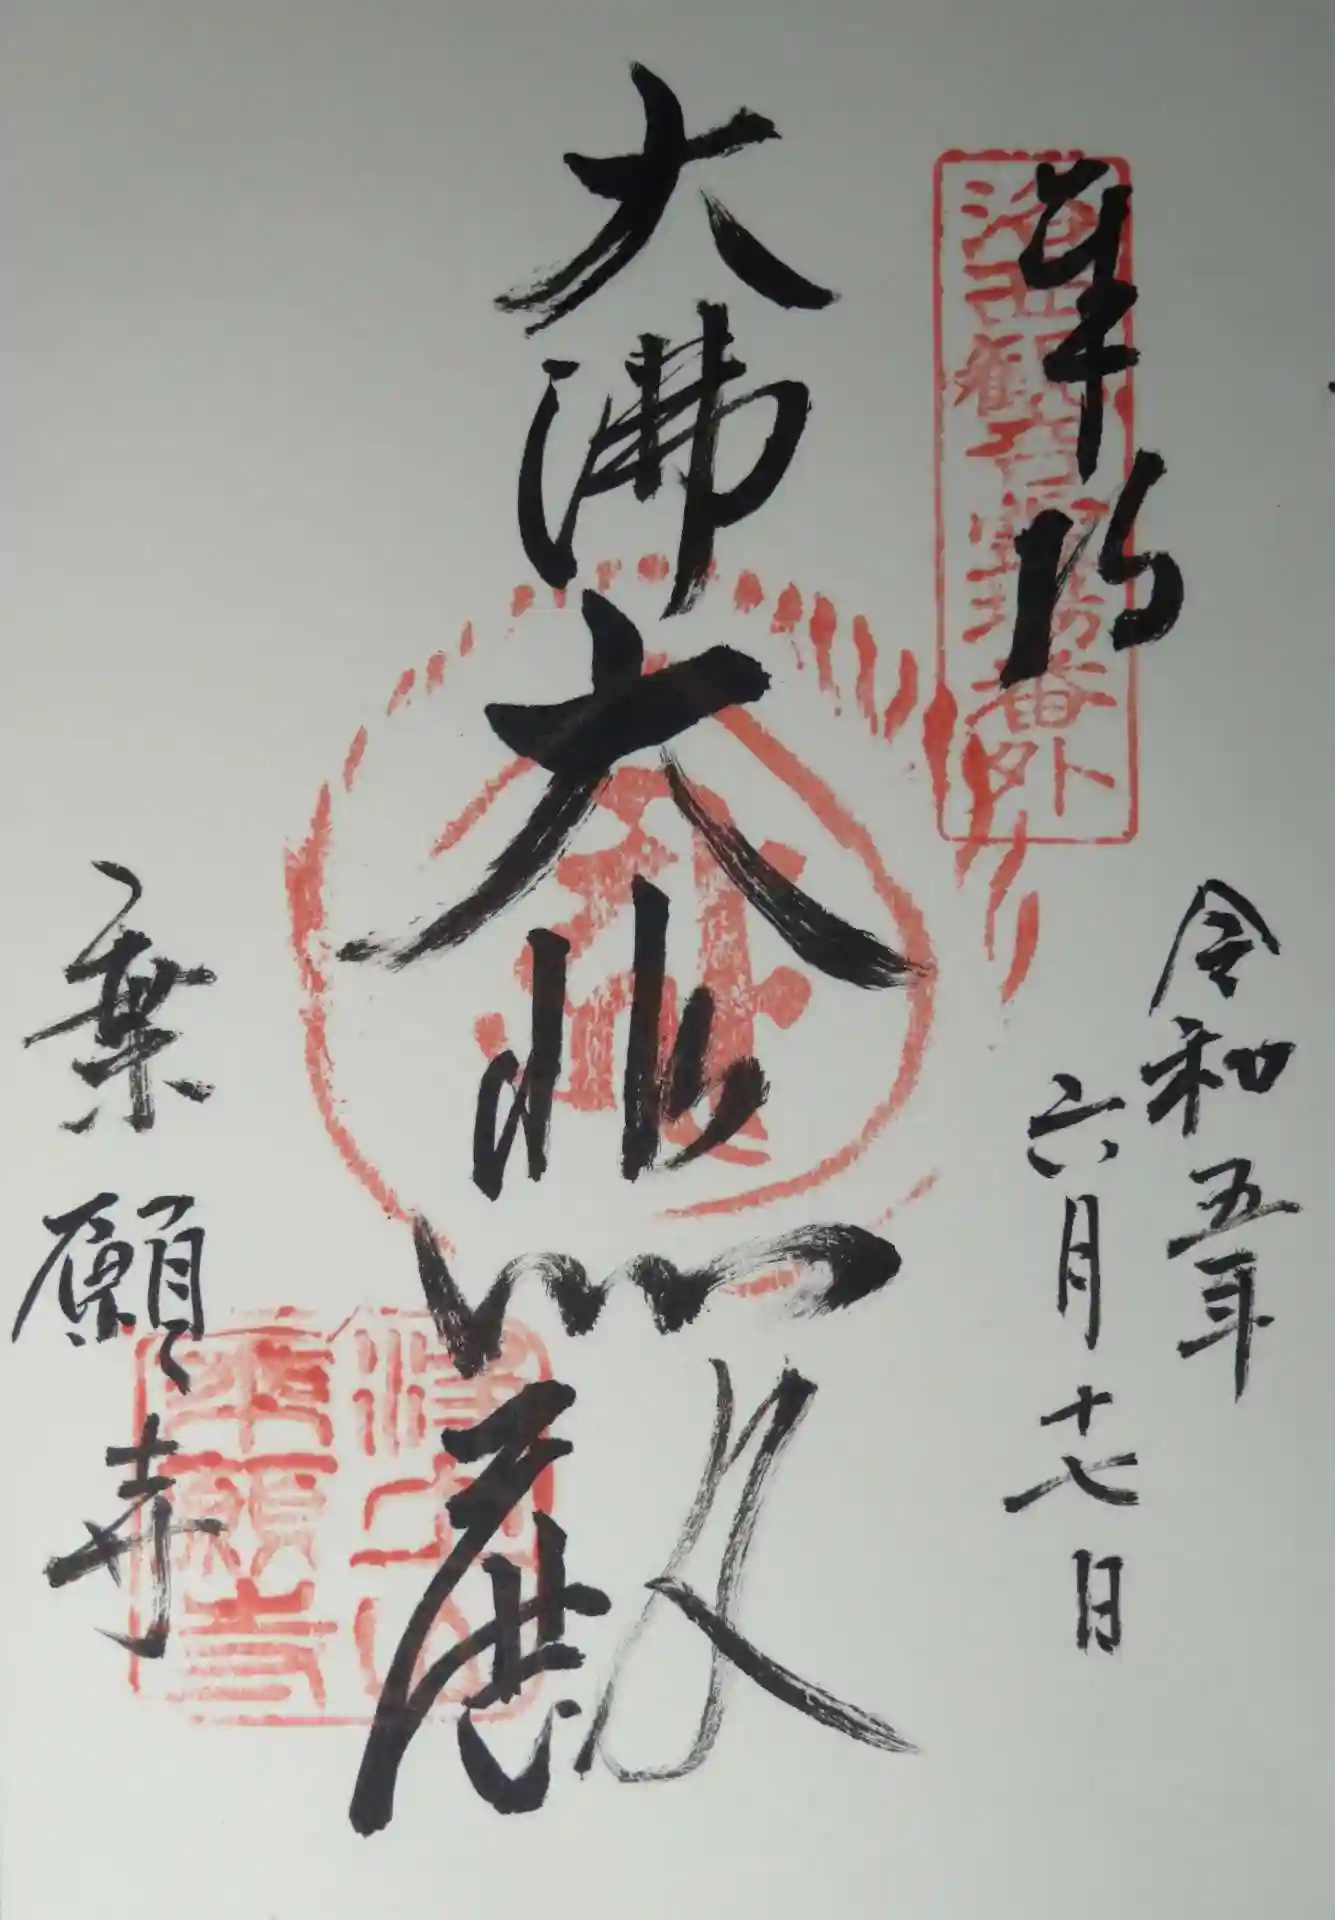 奉拝
洛西観音霊場番外
令和五年
六月十七日
大佛大悲殿
乗願寺
乗願寺